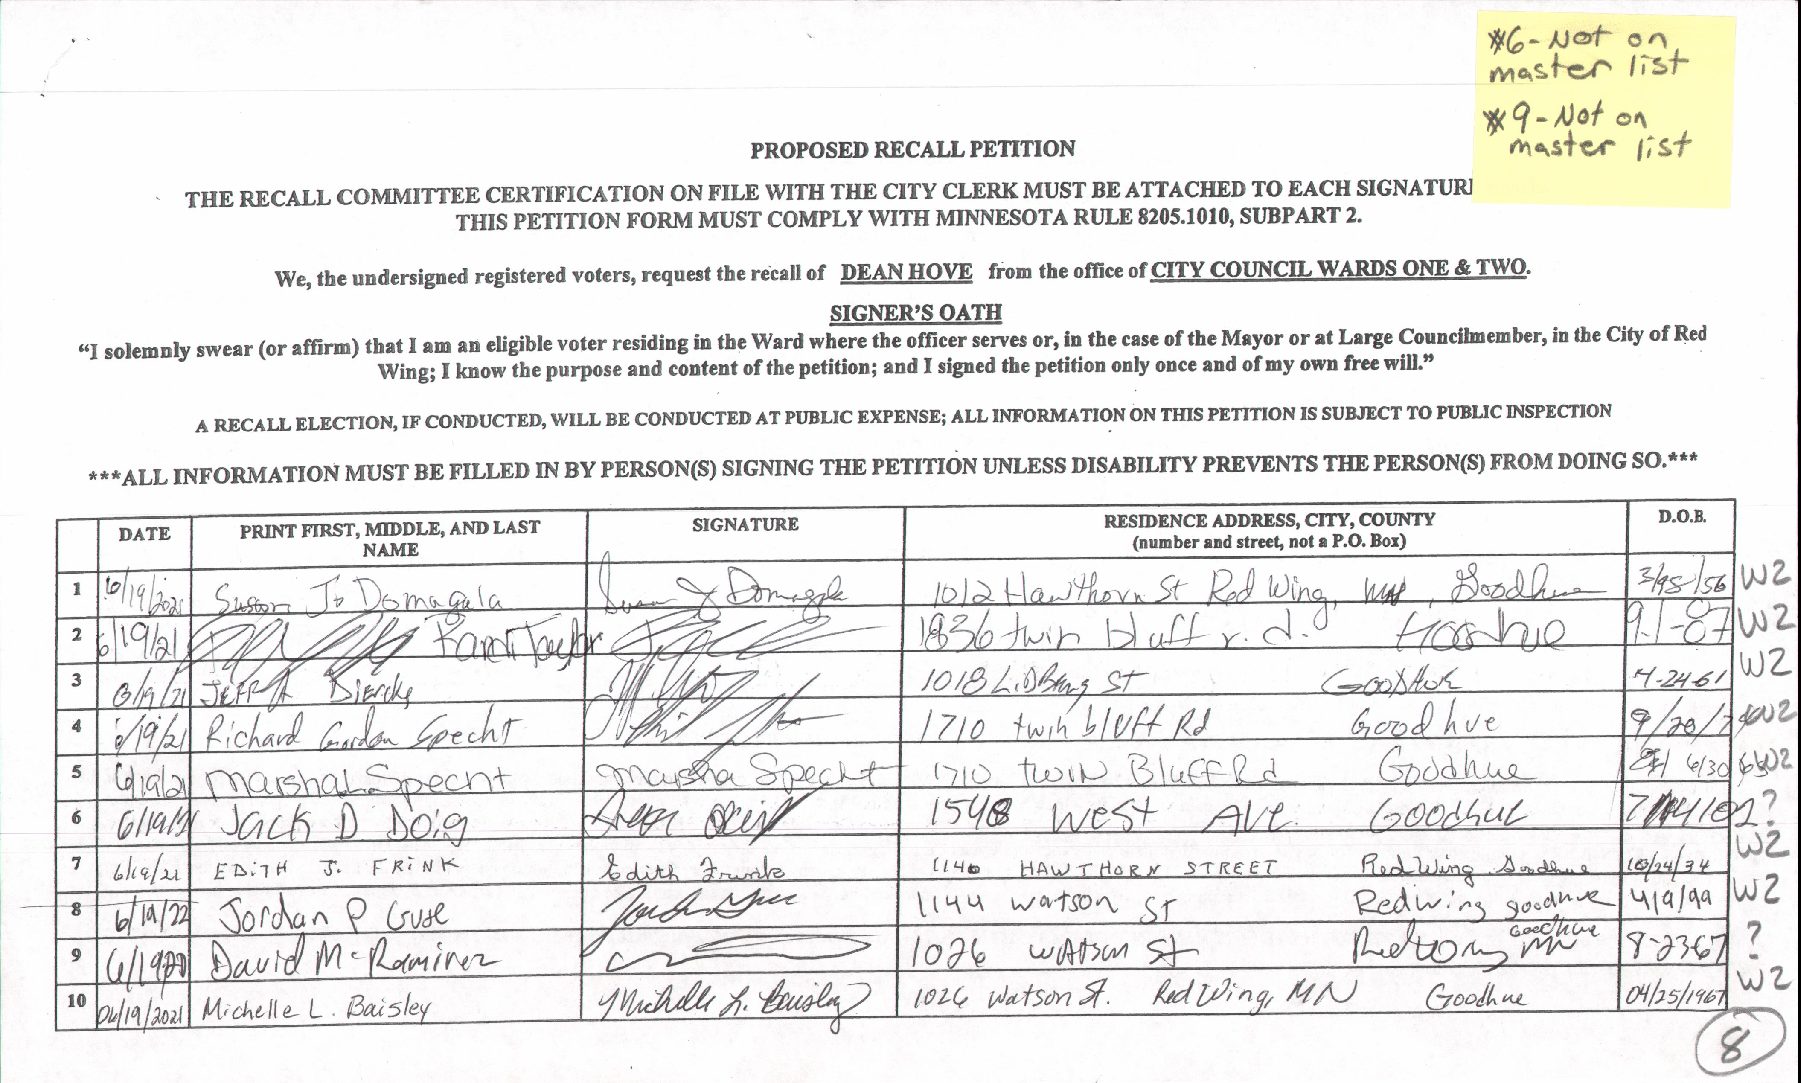 #6 - Not on
master list
#9 - Not on
master list
PROPOSED RECALL PETITION
THE RECALL COMMITTEE CERTIFICATION ON FILE WITH THE CITY CLERK MUST BE ATTACHED TO EACH
THIS PETITION FORM MUST COMPLY WITH MINNESOTA RULE 8205.1010, SUBPART 2.
We, the undersigned registered voters, request the recall of DEAN HOVE from the office of CITY COUNCIL WARDS ONE & TWO.
SIGNER'S OATH
"I solemnly swear (or affirm) that I am an eligible voter residing in the Ward where the officer serves or, in the case of the Mayor or at Large Councilmember, in the City of Red
Wing; I know the purpose and content of the petition; and I signed the petition only once and of my own free will."
A RECALL ELECTION, IF CONDUCTED, WILL BE CONDUCTED AT PUBLIC EXPENSE; ALL INFORMATION ON THIS PETITION IS SUBJECT TO PUBLIC INSPECTION
***ALL INFORMATION MUST BE FILLED IN BY PERSON(S) SIGNING THE PETITION UNLESS DISABILITY PREVENTS THE PERSON(S) FROM DOING SO.***
DATE PRINT FIRST, MIDDLE, AND LAST NAME SIGNATURE RESIDENCE ADDRESS, CITY, COUNTY (number and street, not a P.O. Box) D.O.B.
1 6/19/2021 Susan Jo Domagala Susan J Domagala 1012 Hawthorn St Red Wing, MN, Goodhue W2
2 6/19/21 Kami Taylor 1836 twin bluff r.d. W2
3 Jeff A Diercks 1018 St Goodhue 4-24-61 W2
4 Richard Gordon Specht 1710 twin bluff Rd Goodhue W2
5 6/19/21 Specht Marsha Specht 1710 twin Bluff Rd Goodhue W2
6 6/19/21 Jack D Doig 1548 West Ave. Goodhue ?
7 6/19/21 EDITH J. FRINK Edith Frink 1140 HAWTHORN STREET Red Wing Goodhue 10/24/34 W2
8 6/19/22 Jordan P Guse 1144 watson St Redwing goodhue 4/9/99 W2
9 David McRaminez 1026 Watson St MN Goodhue 8-23-67 ?
10 06/19/2021 Michelle L. Baisley Michelle L. Baisley 1026 Watson St. Red Wing, MN Goodhue 04/25/1967 W2
8